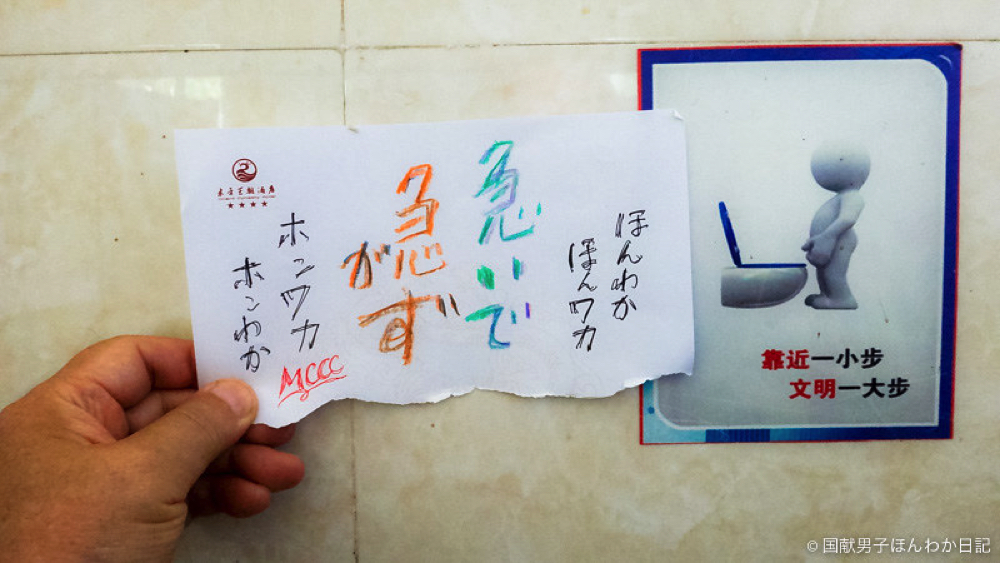 ほんわか
ほんワカ
急いで
急がず
ホンワカ
ホンわか
MCCC
靠近一小步
文明一大步
© 国献男子ほんわか日記